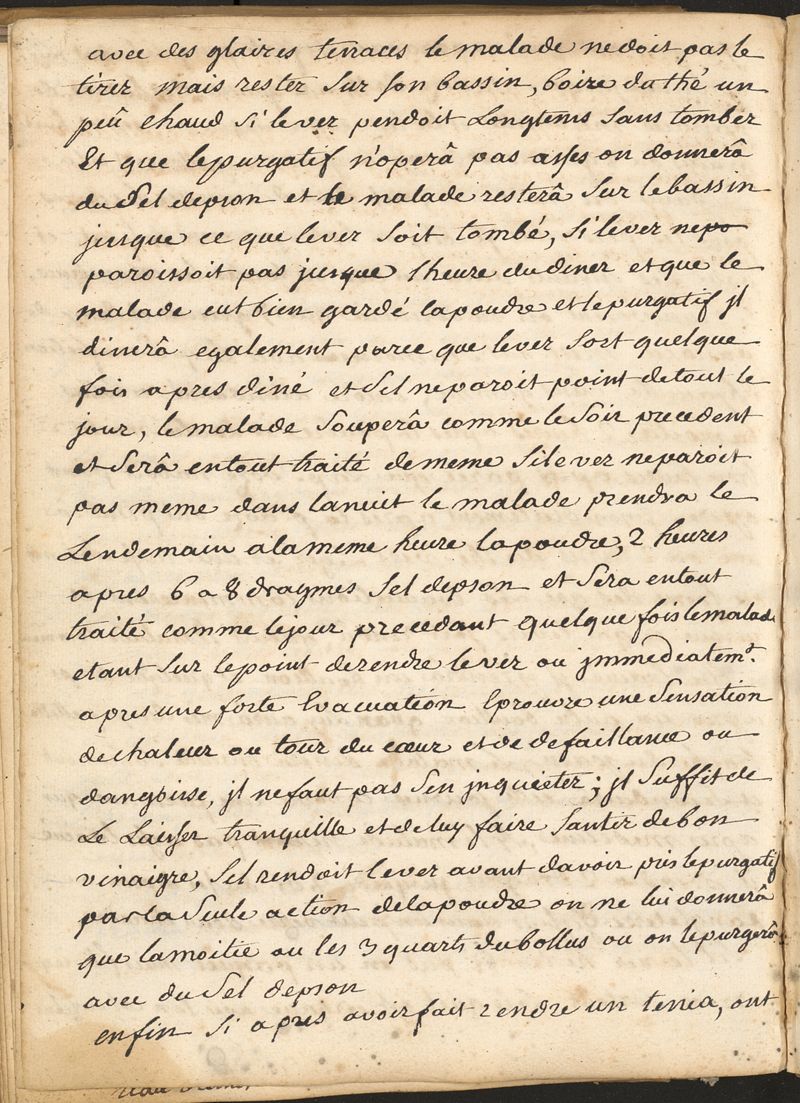 avec des glaires tenaces le malade ne doit pas le
tirer mais rester sur son bassin, boire du thé un
peû chaud si le ver pendoit Longtems sans tomber
Et que le purgatif n'operâ pas asses on donnerâ
du Sel depson et le malade resterâ sur le bassin
jusque ce que le ver soit tombé, si le ver ne po
paroissoit pas jusque lheure du diner et que le
malade eut bien gardé la poudre et le purgatif jl
dinerâ egalement parce que le ver sort quelque
fois apres diné et sil ne paroit point de tout le
jour, le malade souperâ comme le soir precedent
et serâ en tout traité de meme si le ver ne paroit
pas meme dans la nuit le malade prendra le
Lendemain a la meme heure la poudre, 2 heures
apres 6 a 8 dragmes sel depson et sera en tout
traité comme le jour precedant quelque fois le malade
etant sur le point de rendre le ver ou jmmediatemt.
apres une forte Evacuation Eprouve une sensation
de chaleur au tour du cœur et de defaillance ou
dangoise, jl ne faut pas sen jnquieter; jl suffit de
Le Laisser tranquille et de luy faire santir de bon
vinaigre, sil rendoit le ver avant davoir pris le purgatif
par la seule action de la poudre on ne lui donnerâ
que la moitie ou les 3 quarts du bollus ou on le purgerâ
avec du sel depson
enfin si apres avoir fait rendre un tenia, ont